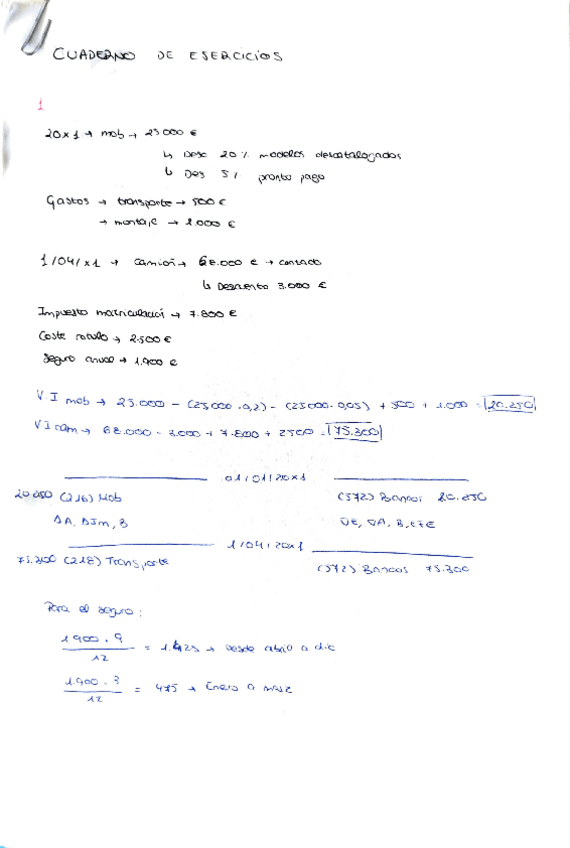 CUADERNO DE ESERCICIOS
1
20x1 → mob → 25000 €
↳ Desc 20 % modelos descatalogados
↳ Des 5 % pronto pago
Gastos → transporte → 500 €
→ montaje → 1.000 €
1/04/x1 → Camión → 68.000 € → contado
↳ Descuento 3.000 €
Impuesto matriculació → 7.800 €
Coste rotulo → 2.500 €
Seguro anual → 1.900 €
V I mob → 25.000 - (25000 · 0,2) - (25000 · 0,05) + 500 + 1.000 = 20.250
V I cam → 68.000 - 3.000 + 7.800 + 2500 = 75.300
01/01/20x1
20.250 (216) Mob (572) Bancos 20.250
ΔA, ΔIm, B
1/04/20x1
75.300 (218) Transporte (572) Bancos 75.300
Para el seguro:
1900 · 9
12
= 1.425 → Desde abril a dic
1.900 · 3
12
= 475 → Enero a marz